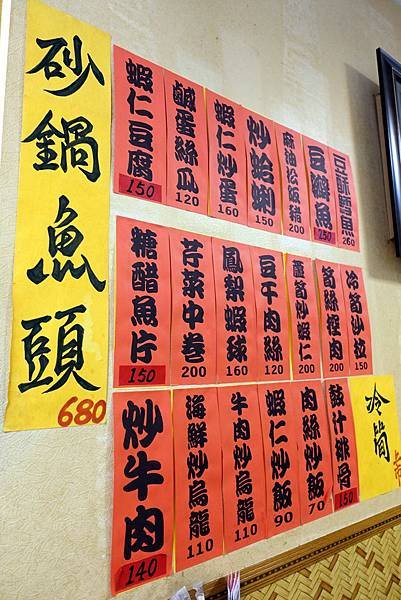 砂鍋魚頭 680
蝦仁豆腐 150
鹹蛋絲瓜 120
蝦仁炒蛋 160
炒蛤蜊 150
麻油松阪豬 200
豆瓣魚 250
豆酥鱈魚 260
糖醋魚片 150
芹菜中卷 200
鳳梨蝦球 160
豆干肉絲 120
蘆筍炒蝦仁 200
筍絲控肉 200
冷筍沙拉 150
炒牛肉 140
海鮮炒烏龍 110
牛肉炒烏龍 110
蝦仁炒飯 90
肉絲炒飯 70
豉汁排骨 150
冷筍